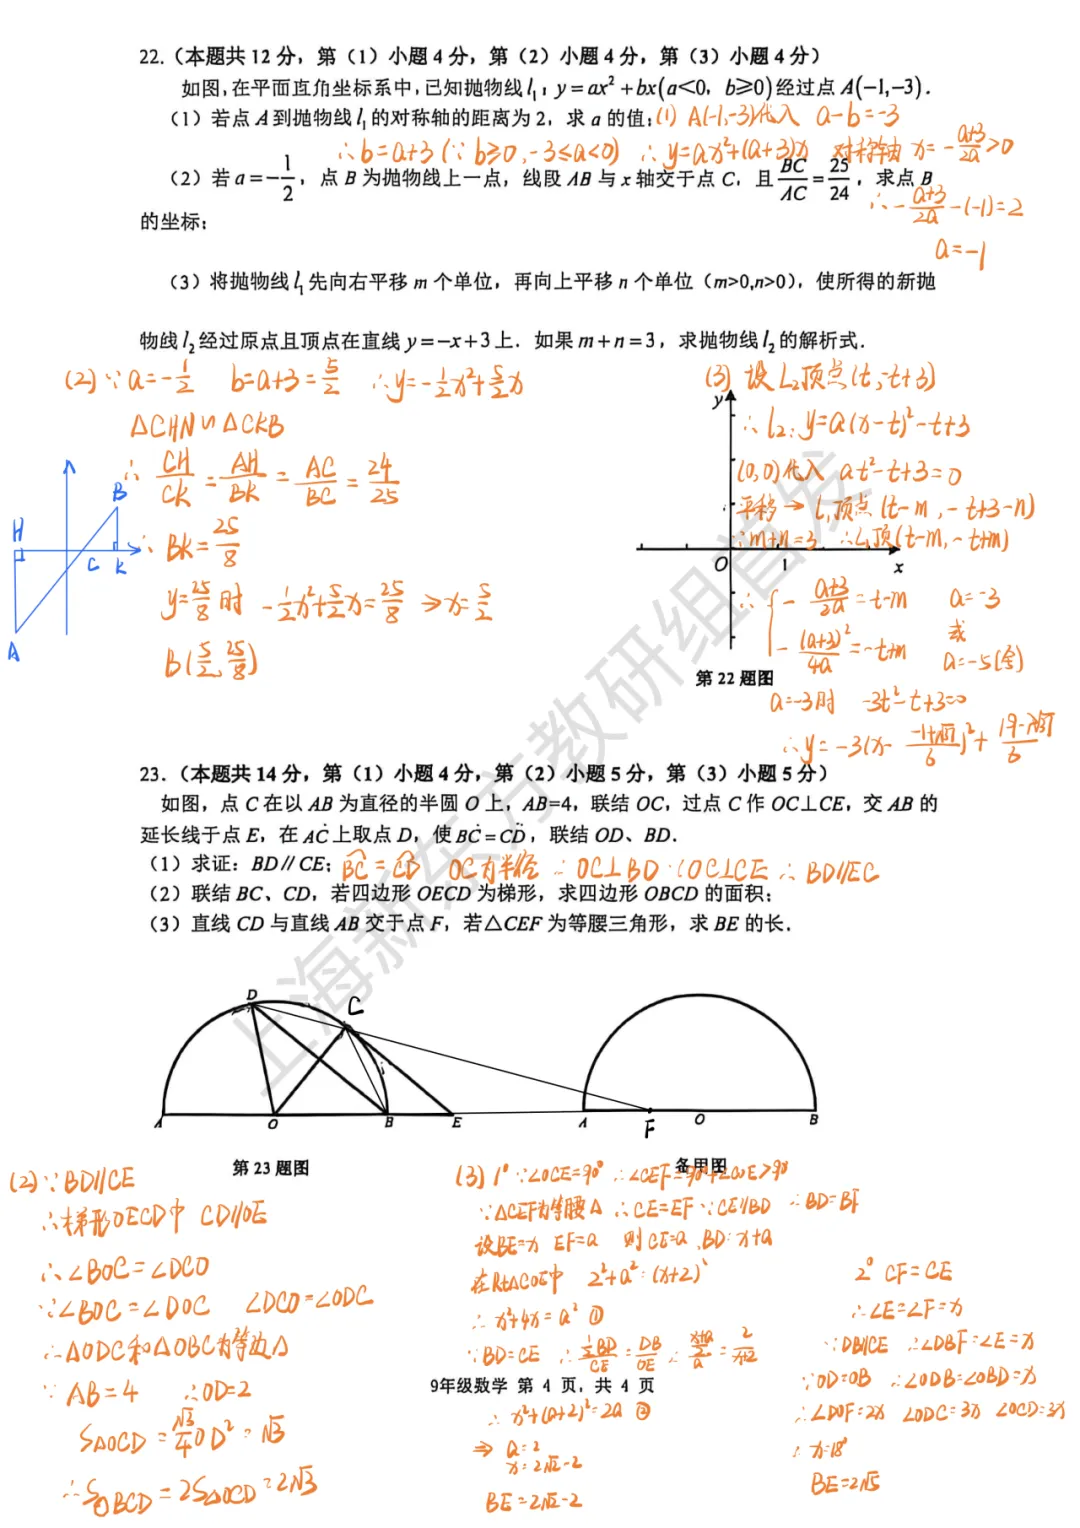 22.（本题共 12 分，第（1）小题 4 分，第（2）小题 4 分，第（3）小题 4 分）
如图,在平面直角坐标系中,已知抛物线 l₁: y=ax²+bx(a<0, b≥0)经过点 A(-1,-3).
（1）若点 A 到抛物线 l₁ 的对称轴的距离为 2，求 a 的值;
(1) A(-1,-3)代入 a-b=-3
∴b=a+3 (∵ b≥0, -3≤a<0) ∴y=ax²+(a+3)x 对称轴 x=-(a+3)/2a>0
（2）若 a=-1/2，点 B 为抛物线上一点，线段 AB 与 x 轴交于点 C，且 BC/AC=25/24，求点 B
的坐标;
∴-(a+3)/2a-(-1)=2
a=-1
（3）将抛物线 l₁ 先向右平移 m 个单位，再向上平移 n 个单位（m>0,n>0），使所得的新抛
物线 l₂ 经过原点且顶点在直线 y=-x+3 上．如果 m+n=3，求抛物线 l₂ 的解析式．
(2) ∵a=-1/2 b=a+3=5/2 ∴y=-1/2x²+5/2x
△CHN∽△CKB
∴ CH/CK=AH/BK=AC/BC=24/25
∴ BK=25/8
y=25/8时 -1/2x²+5/2x=25/8 ⇒x=5/2
B(5/2, 25/8)
H
B
C
K
A
(3) 设 L₂顶点(t,-t+3)
∴ l₂: y=a(x-t)²-t+3
(0,0)代入 at²-t+3=0
平移→ L₁顶点 (t-m, -t+3-n)
∵m+n=3 ∴L₁顶(t-m, -t+m)
y
O
1
x
∴ { -(a+3)/2a=t-m
-(a+3)²/4a=-t+m
a=-3
或
a=-5(舍)
第 22 题图
a=-3时 -3t²-t+3=0
∴y=-3(x-(-1+√37)/6)²+(19-√37)/6
23.（本题共 14 分，第（1）小题 4 分，第（2）小题 5 分，第（3）小题 5 分）
如图，点 C 在以 AB 为直径的半圆 O 上，AB=4，联结 OC，过点 C 作 OC⊥CE，交 AB 的
延长线于点 E，在 AC 上取点 D，使 BC=CD，联结 OD、BD．
（1）求证：BD∥CE;
BC=CD OC为半径 ∴OC⊥BD ∵OC⊥CE ∴BD∥EC
（2）联结 BC、CD，若四边形 OECD 为梯形，求四边形 OBCD 的面积;
（3）直线 CD 与直线 AB 交于点 F，若△CEF 为等腰三角形，求 BE 的长．
D
C
A
O
B
E
A
F
O
B
第 23 题图
备用图
(2)∵BD∥CE
∴梯形OECD中 CD∥OE
∴∠BOC=∠DCO
∵∠BOC=∠DOC ∠DCO=∠ODC
∴△ODC和△OBC为等边△
∵ AB=4 ∴OD=2
S△OCD=√3/4OD²=√3
∴S OBCD=2S△OCD=2√3
(3) 1° ∵∠OCE=90° ∴∠CEF=90°+∠COE>90°
∵△CEF为等腰△ ∴CE=EF ∵CE∥BD ∴BD=BF
设BE=x EF=a 则CE=a BD=x+a
在Rt△COE中 2²+a²=(x+2)²
∴x²+4x=a² ①
∵BD∥CE ∴ ½BD/CE=OB/OE ∴ (x+a)/2/a=2/(x+2)
∴x²+(a+2)²=2a ②
⇒ a=2
x=2√2-2
BE=2√2-2
2° CF=CE
∴∠E=∠F=x
∵DB∥CE ∴∠DBF=∠E=x
∵OD=OB ∴∠ODB=∠OBD=x
∴∠DOF=2x ∠ODC=3x ∠OCD=3x
∴x=18°
BE=2√5
9年级数学 第 4 页, 共 4 页
上海新东方教研组首发